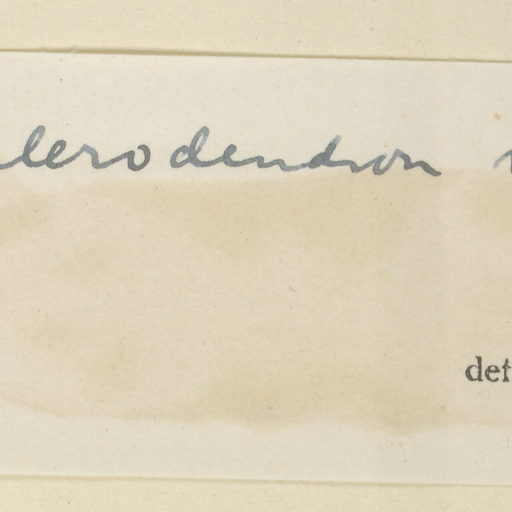 lerodendron
det